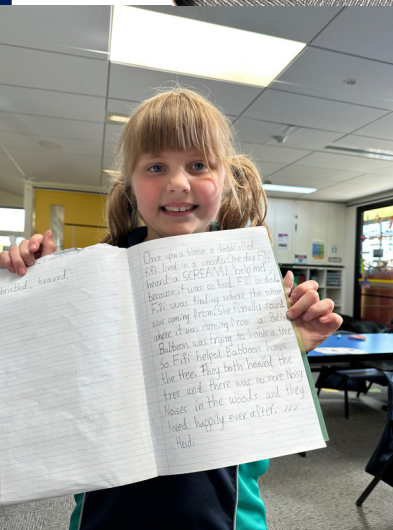 heaved.
Once upon a time a
FiFi lived in a woods. One day FiFi
heard a SCREAM! help me!
because it was so loud. FiFi
FiFi was finding where the scream
was coming from. She finally found
where it was coming from. a
Babboon was trying to heave a tree
So FiFi helped Babboon heave
the tree. They both heaved the
tree and there was no more Noisy
Noises in the woods and they
lived happily ever after.
Heidi